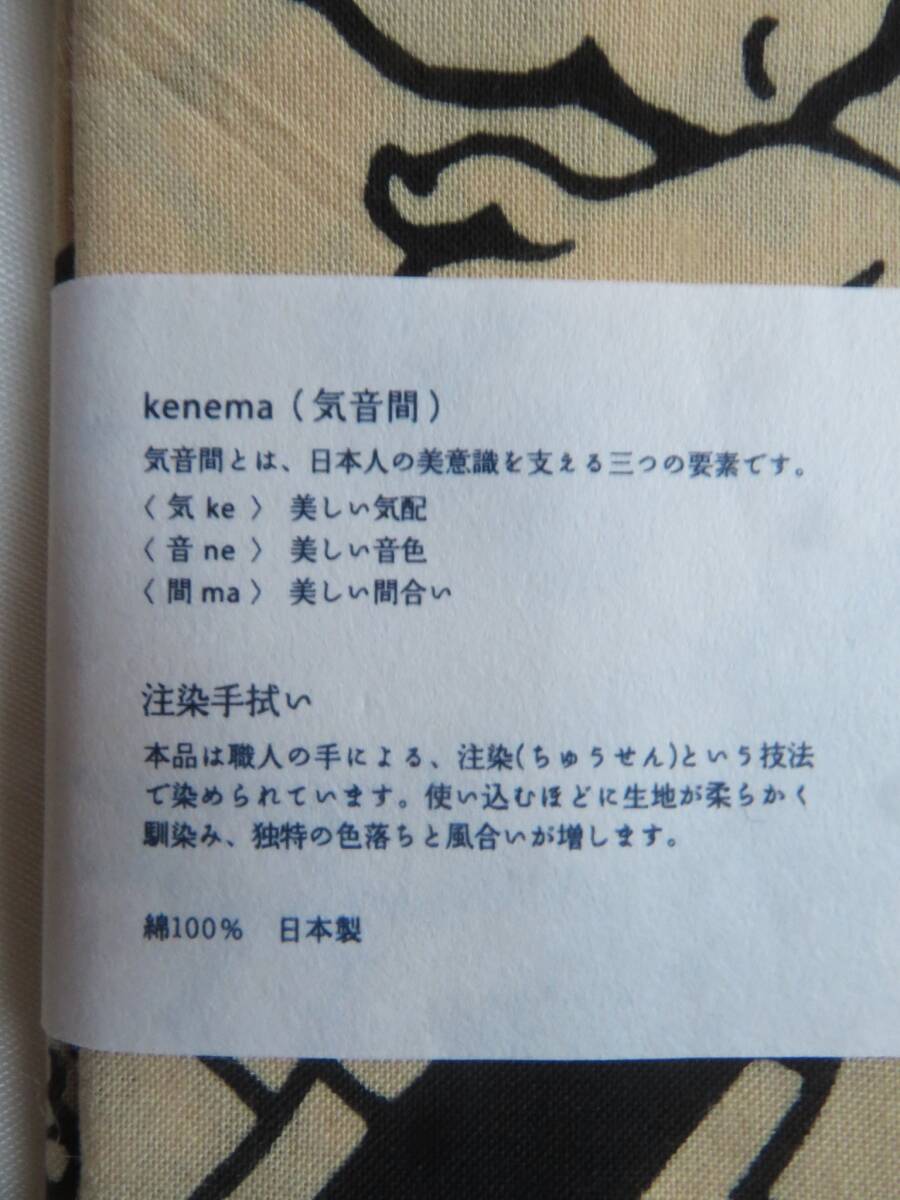 kenema（気音間）
気音間とは、日本人の美意識を支える三つの要素です。
〈 気 ke 〉 美しい気配
〈 音 ne 〉 美しい音色
〈 間 ma 〉 美しい間合い
注染手拭い
本品は職人の手による、注染(ちゅうせん)という技法
で染められています。使い込むほどに生地が柔らかく
馴染み、独特の色落ちと風合いが増します。
綿100%　日本製